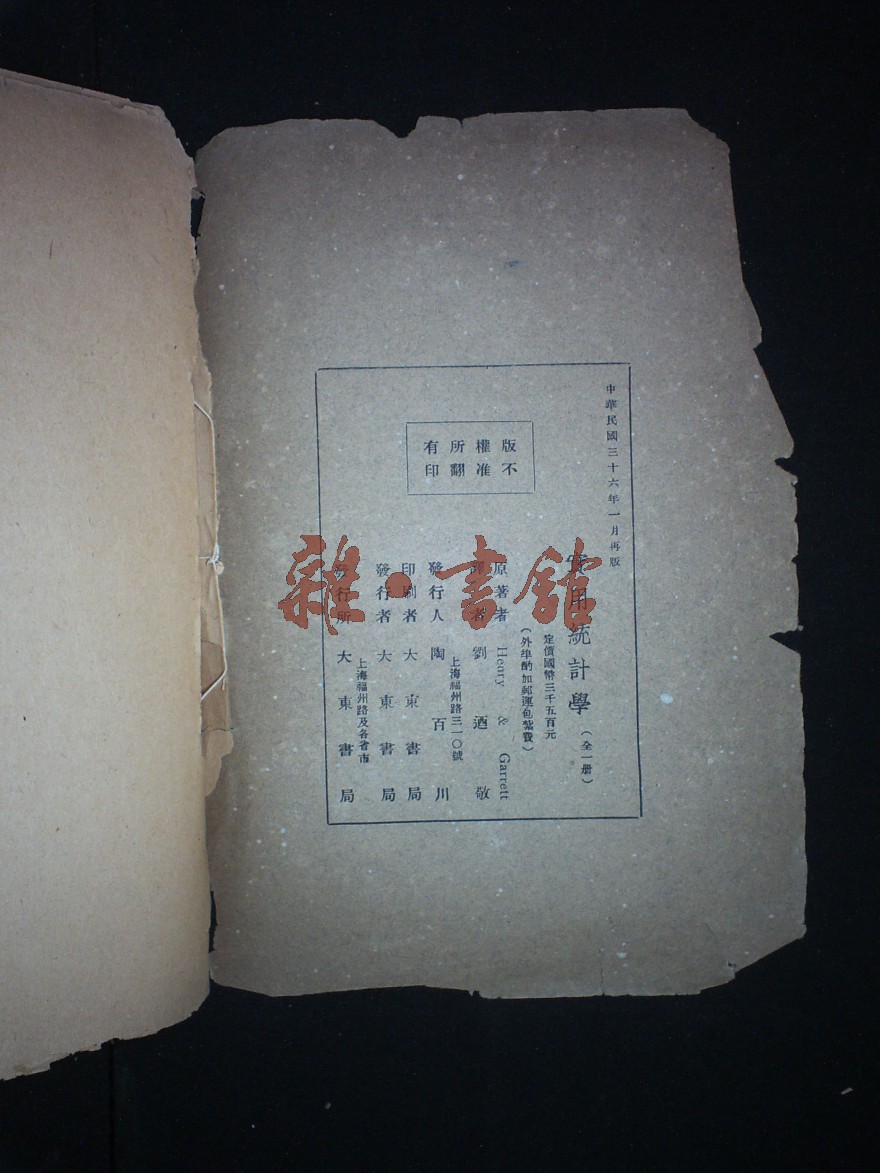 中華民國三十六年一月再版
實用統計學（全一册）
定價國幣三千五百元
（外埠酌加郵運包紮費）
原著者 Henry & Garrett
譯者 劉迺敬
發行人 陶百川
上海福州路三一〇號
印刷者 大東書局
發行者 大東書局
發行所 大東書局
上海福州路及各省市
版權所有
不准翻印
雜·書館